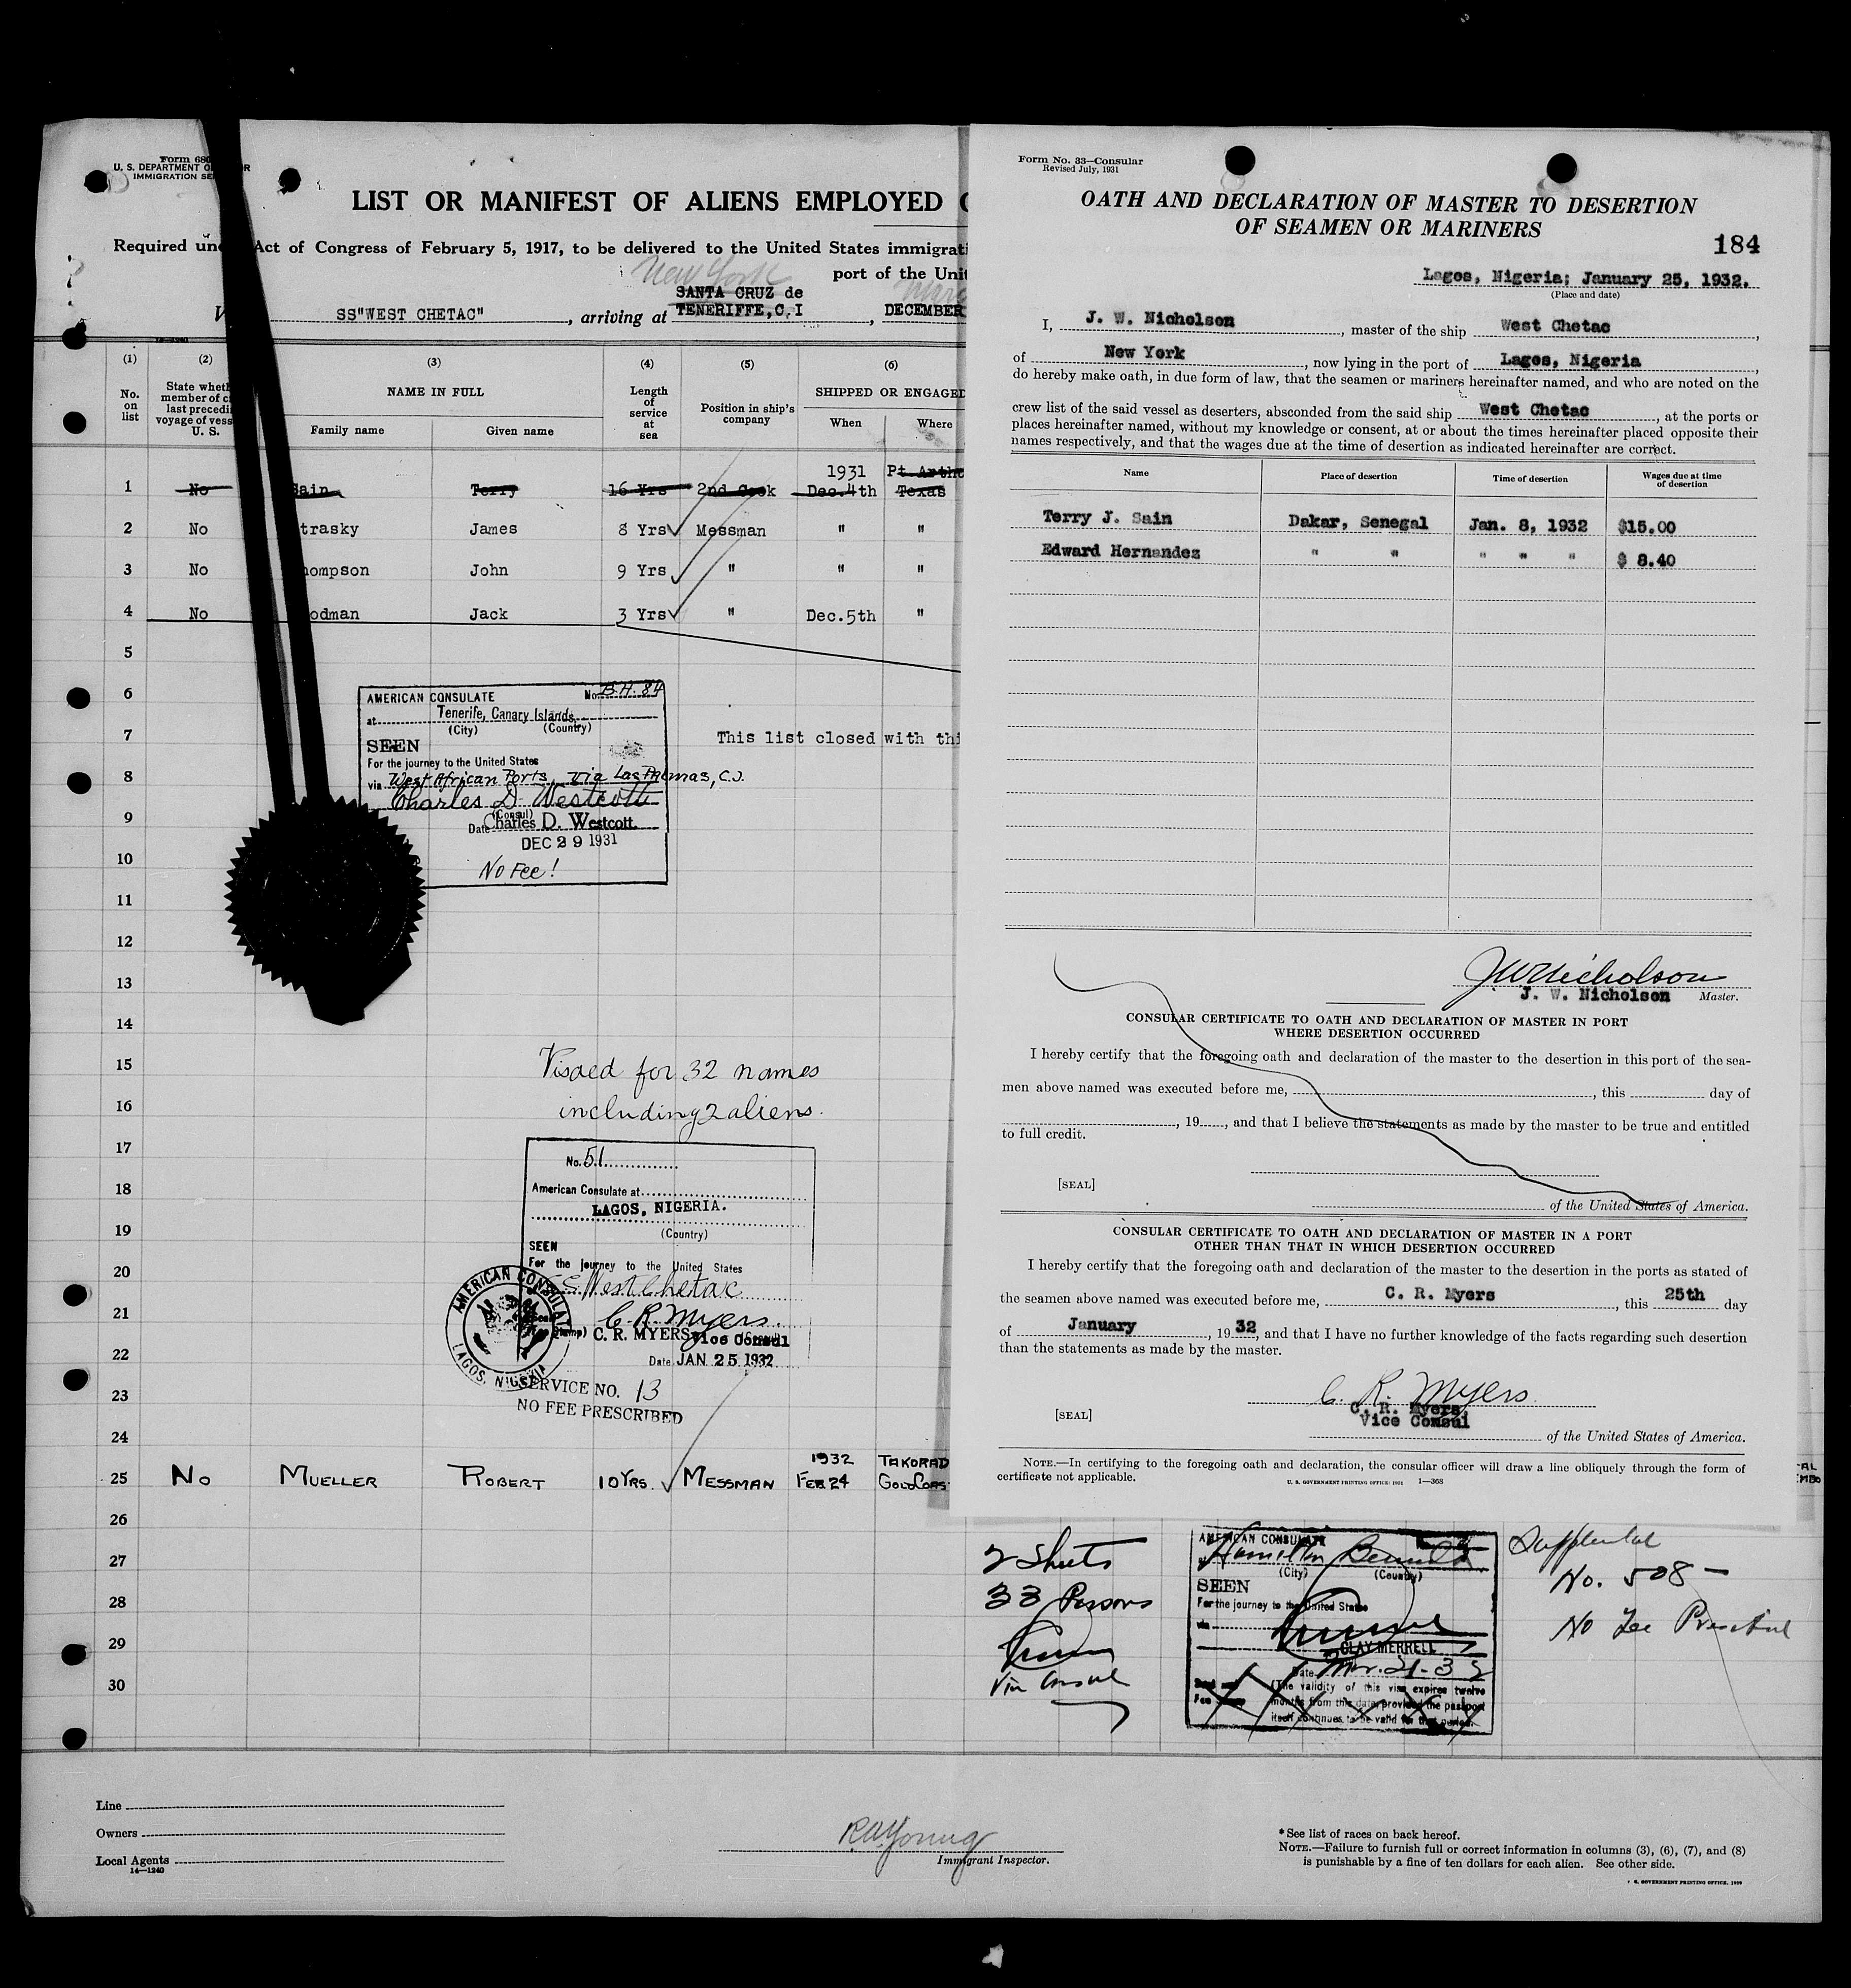 Form 680
U. S. DEPARTMENT OF LABOR
IMMIGRATION SE
LIST OR MANIFEST OF ALIENS EMPLOYED O
Required und Act of Congress of February 5, 1917, to be delivered to the United States immigrati
New York
port of the Unit
SS"WEST CHETAC", arriving at SANTA CRUZ de TENERIFFE,C.I, DECEMBER
(1) (2) (3) (4) (5) (6)
No. on list
State wheth member of c last precedi voyage of vess U. S.
NAME IN FULL
Family name Given name
Length of service at sea
Position in ship's company
SHIPPED OR ENGAGED
When Where
1931 Pt Artho
1 No Sain Terry 16 Yrs 2nd Cook Dec.4th Texas
2 No trasky James 8 Yrs Messman " "
3 No hompson John 9 Yrs " " "
4 No odman Jack 3 Yrs " Dec.5th "
5
6
7 This list closed with thi
8
9
10
11
12
13
14
15
16
17
18
19
20
21
22
23
24
AMERICAN CONSULATE No. B.H. 84
at Tenerife, Canary Islands,
(City) (Country)
SEEN
For the journey to the United States
via West African Ports, via Las Palmas, C.I.
Charles D Westcott
(Consul)
Charles D. Westcott.
Date DEC 29 1931
No Fee!
Visaed for 32 names
including 2 aliens.
No. 51
American Consulate at
LAGOS, NIGERIA.
(Country)
SEEN
For the journey to the United States
S.S. West Chetac
C. R. Myers.
C. R. MYERS Vice Consul
Date JAN 25 1932
AMERICAN CONSULATE
LAGOS, NIGERIA
SERVICE NO. 13
NO FEE PRESCRIBED
1932 TAKORAD
25 No MUELLER ROBERT 10 YRS. MESSMAN FEB 24 GOLD COAS
26
27
28
29
30
2 Sheets
33 Persons
Vice Consul
AMERICAN CONSULATE
Hamilton Bermuda
(City) (Country)
SEEN
For the journey to the United States
via
CLAY MERRELL
Date Mar. 21-32
(The validity of this visa expires twelve
months from this date provided the passport
itself continues to be valid for that period.
Supplemental
No. 508-
No Fee Prescribed
Line
Owners
Local Agents
14—1240
R W Young
Immigrant Inspector.
* See list of races on back hereof.
NOTE.—Failure to furnish full or correct information in columns (3), (6), (7), and (8)
is punishable by a fine of ten dollars for each alien. See other side.
Form No. 33—Consular
Revised July, 1931
OATH AND DECLARATION OF MASTER TO DESERTION
OF SEAMEN OR MARINERS
184
Lagos, Nigeria; January 25, 1932.
(Place and date)
I, J. W. Nicholson, master of the ship West Chetac,
of New York, now lying in the port of Lagos, Nigeria,
do hereby make oath, in due form of law, that the seamen or mariners hereinafter named, and who are noted on the
crew list of the said vessel as deserters, absconded from the said ship West Chetac, at the ports or
places hereinafter named, without my knowledge or consent, at or about the times hereinafter placed opposite their
names respectively, and that the wages due at the time of desertion as indicated hereinafter are correct.
Name Place of desertion Time of desertion Wages due at time of desertion
Terry J. Sain Dakar, Senegal Jan. 8, 1932 $15.00
Edward Hernandez " " " " " $ 8.40
J W Nicholson
J. W. Nicholson Master.
CONSULAR CERTIFICATE TO OATH AND DECLARATION OF MASTER IN PORT
WHERE DESERTION OCCURRED
I hereby certify that the foregoing oath and declaration of the master to the desertion in this port of the sea-
men above named was executed before me, , this day of
, 19 , and that I believe the statements as made by the master to be true and entitled
to full credit.
[SEAL]
of the United States of America.
CONSULAR CERTIFICATE TO OATH AND DECLARATION OF MASTER IN A PORT
OTHER THAN THAT IN WHICH DESERTION OCCURRED
I hereby certify that the foregoing oath and declaration of the master to the desertion in the ports as stated of
the seamen above named was executed before me, C. R. Myers, this 25th day
of January, 19 32, and that I have no further knowledge of the facts regarding such desertion
than the statements as made by the master.
C. R. Myers.
C. R. Myers,
Vice Consul
[SEAL]
of the United States of America.
NOTE.—In certifying to the foregoing oath and declaration, the consular officer will draw a line obliquely through the form of
certificate not applicable.
U. S. GOVERNMENT PRINTING OFFICE: 1931 1—368